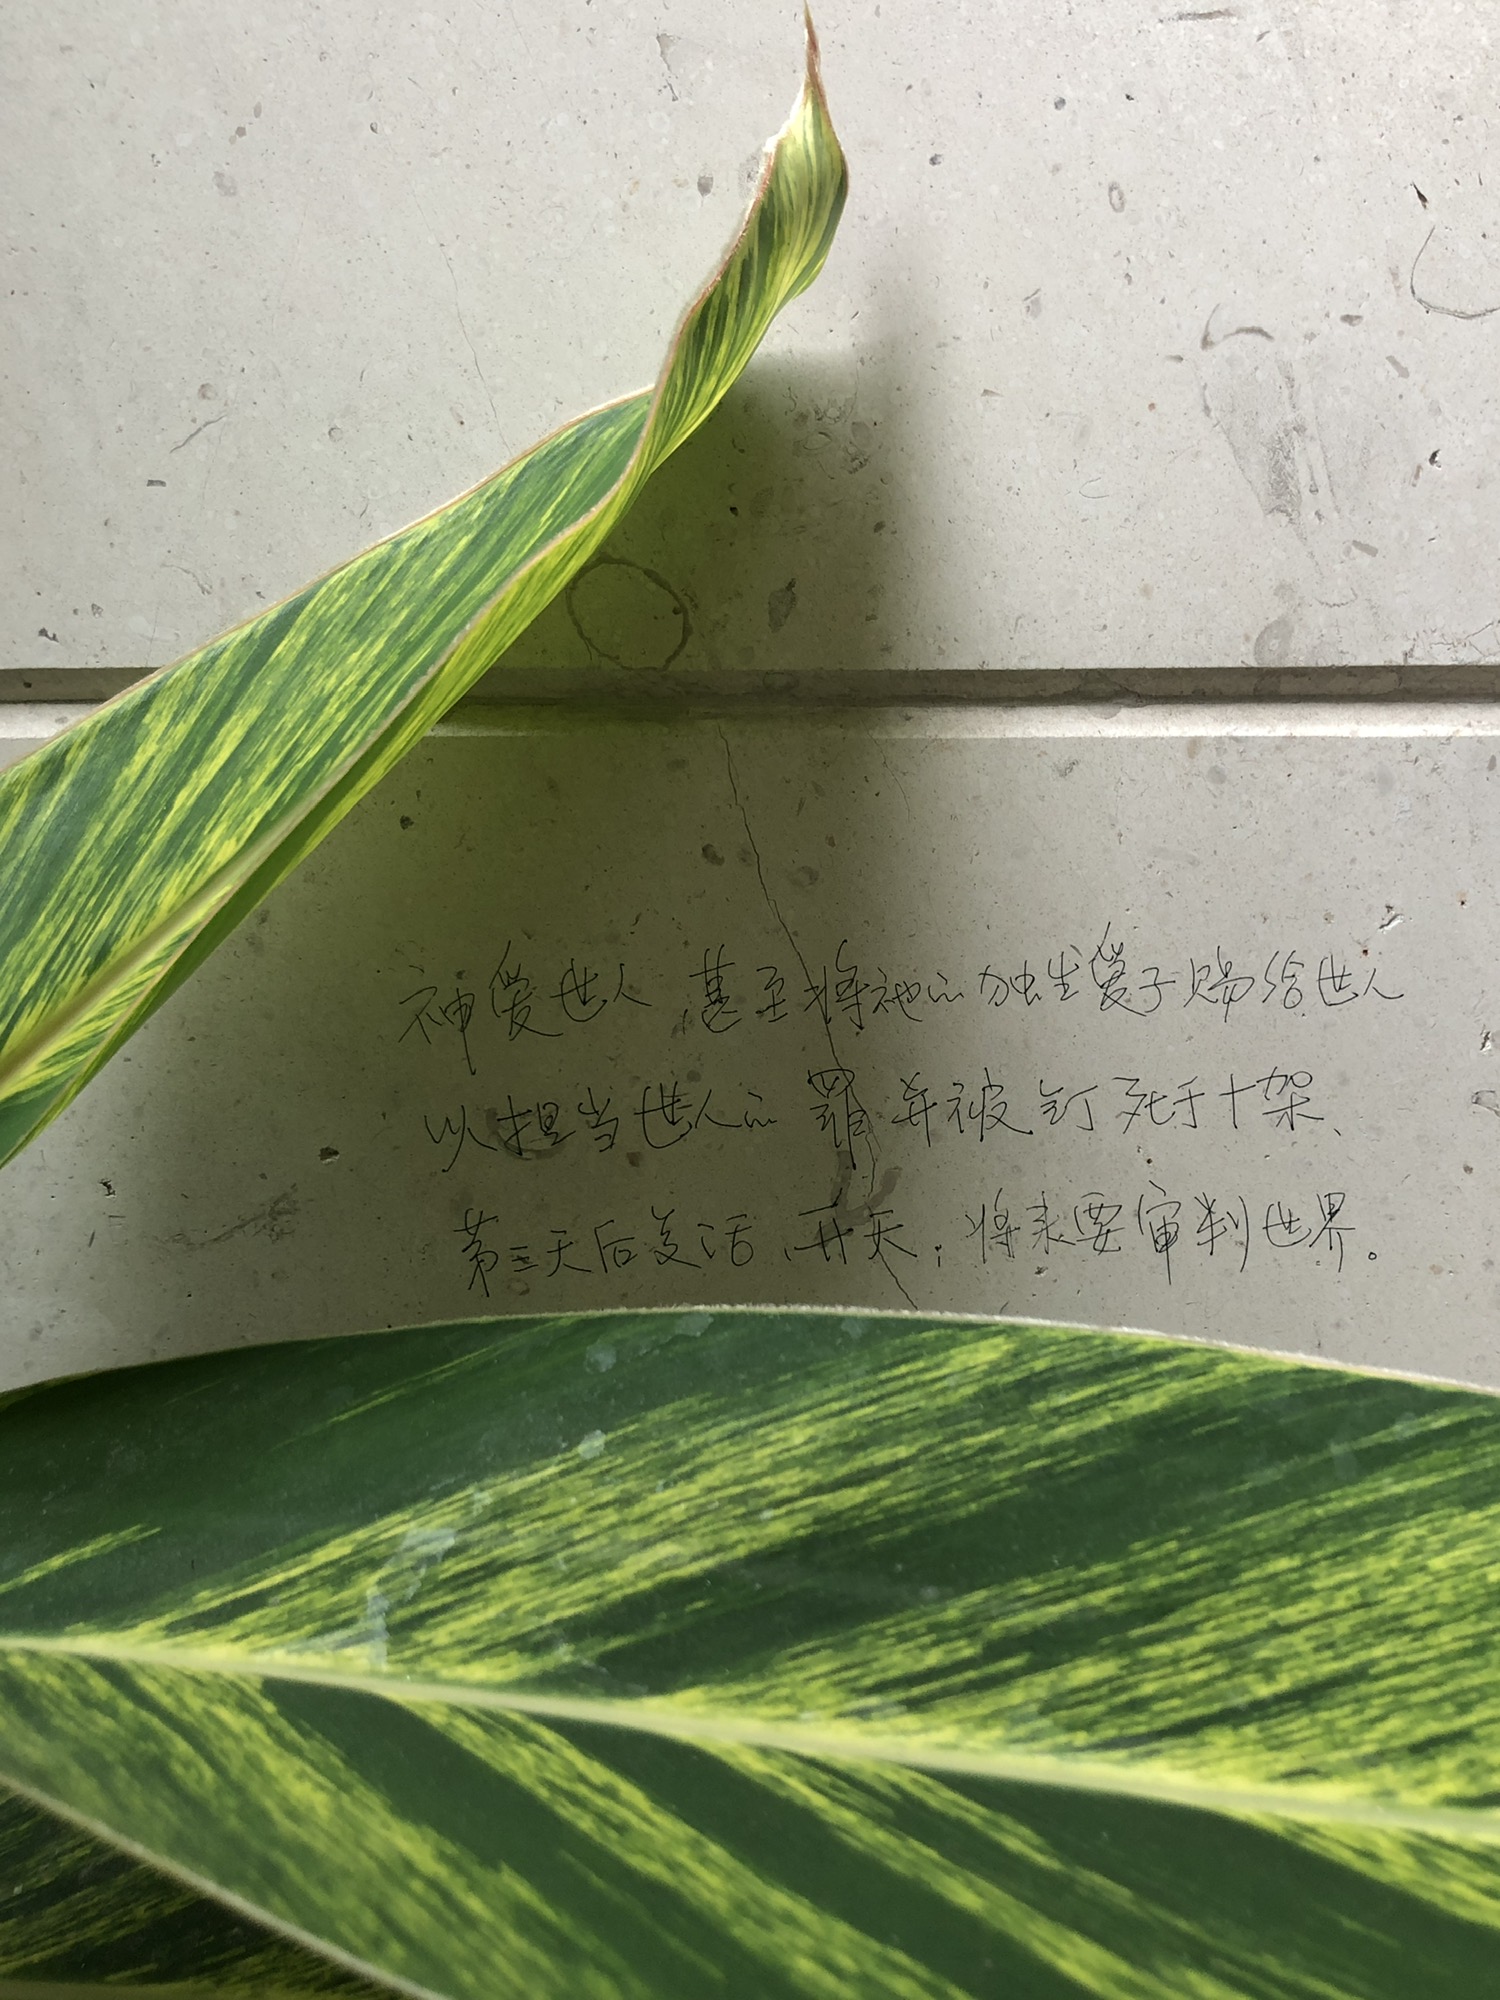 神爱世人 甚至将祂的独生爱子赐给世人
以担当世人的罪 并被钉死于十架、
第三天后复活、升天；将来要审判世界。